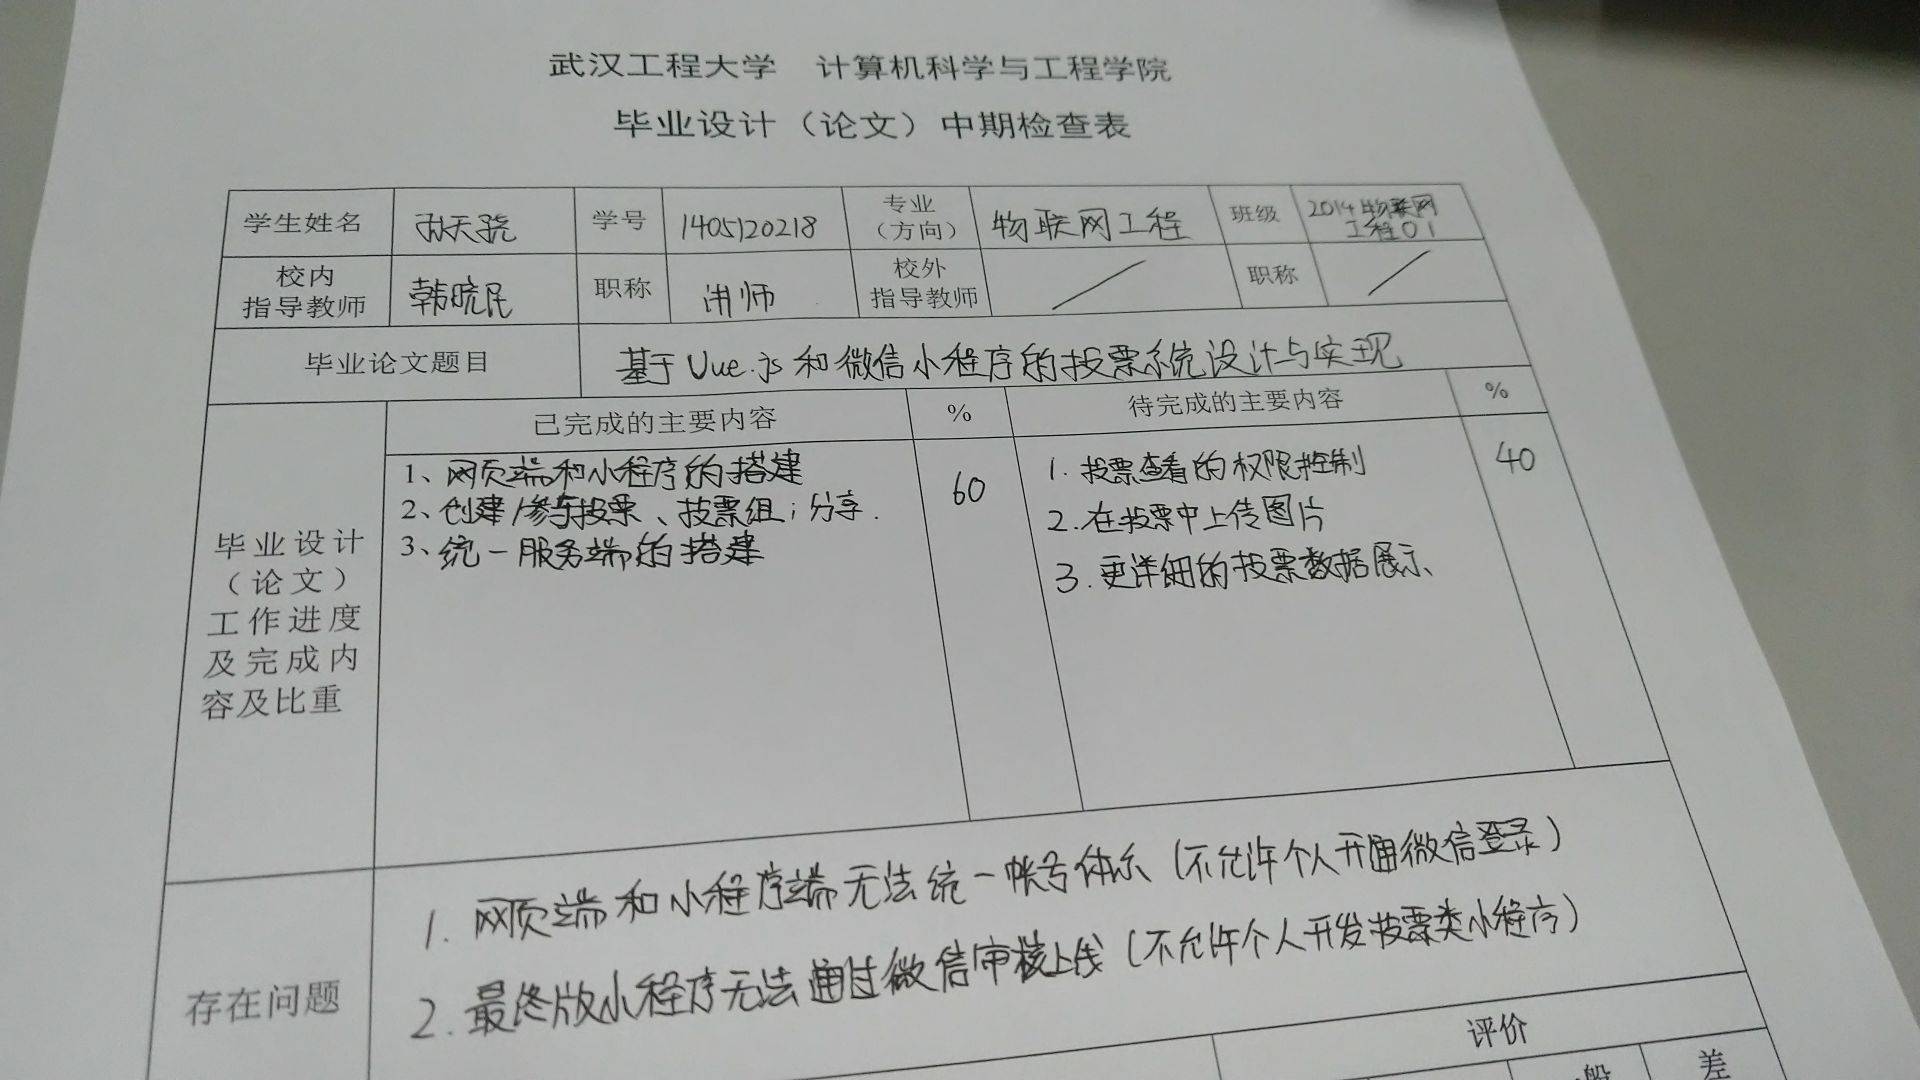 武汉工程大学 计算机科学与工程学院
毕业设计（论文）中期检查表
学生姓名 孙天骁 学号 1405120218 专业（方向） 物联网工程 班级 2014物联网工程01
校内指导教师 韩晓民 职称 讲师 校外指导教师 / 职称 /
毕业论文题目 基于Vue.js和微信小程序的投票系统设计与实现
毕业设计（论文）工作进度及完成内容及比重
已完成的主要内容 % 待完成的主要内容 %
1、网页端和小程序的搭建
2、创建/参与投票、投票组；分享.
3、统一服务端的搭建
60
1. 投票查看的权限控制
2. 在投票中上传图片
3. 更详细的投票数据展示
40
存在问题
1. 网页端和小程序端无法统一帐号体系（不允许个人开通微信登录）
2. 最终版小程序无法通过微信审核上线（不允许个人开发投票类小程序）
评价
般 差